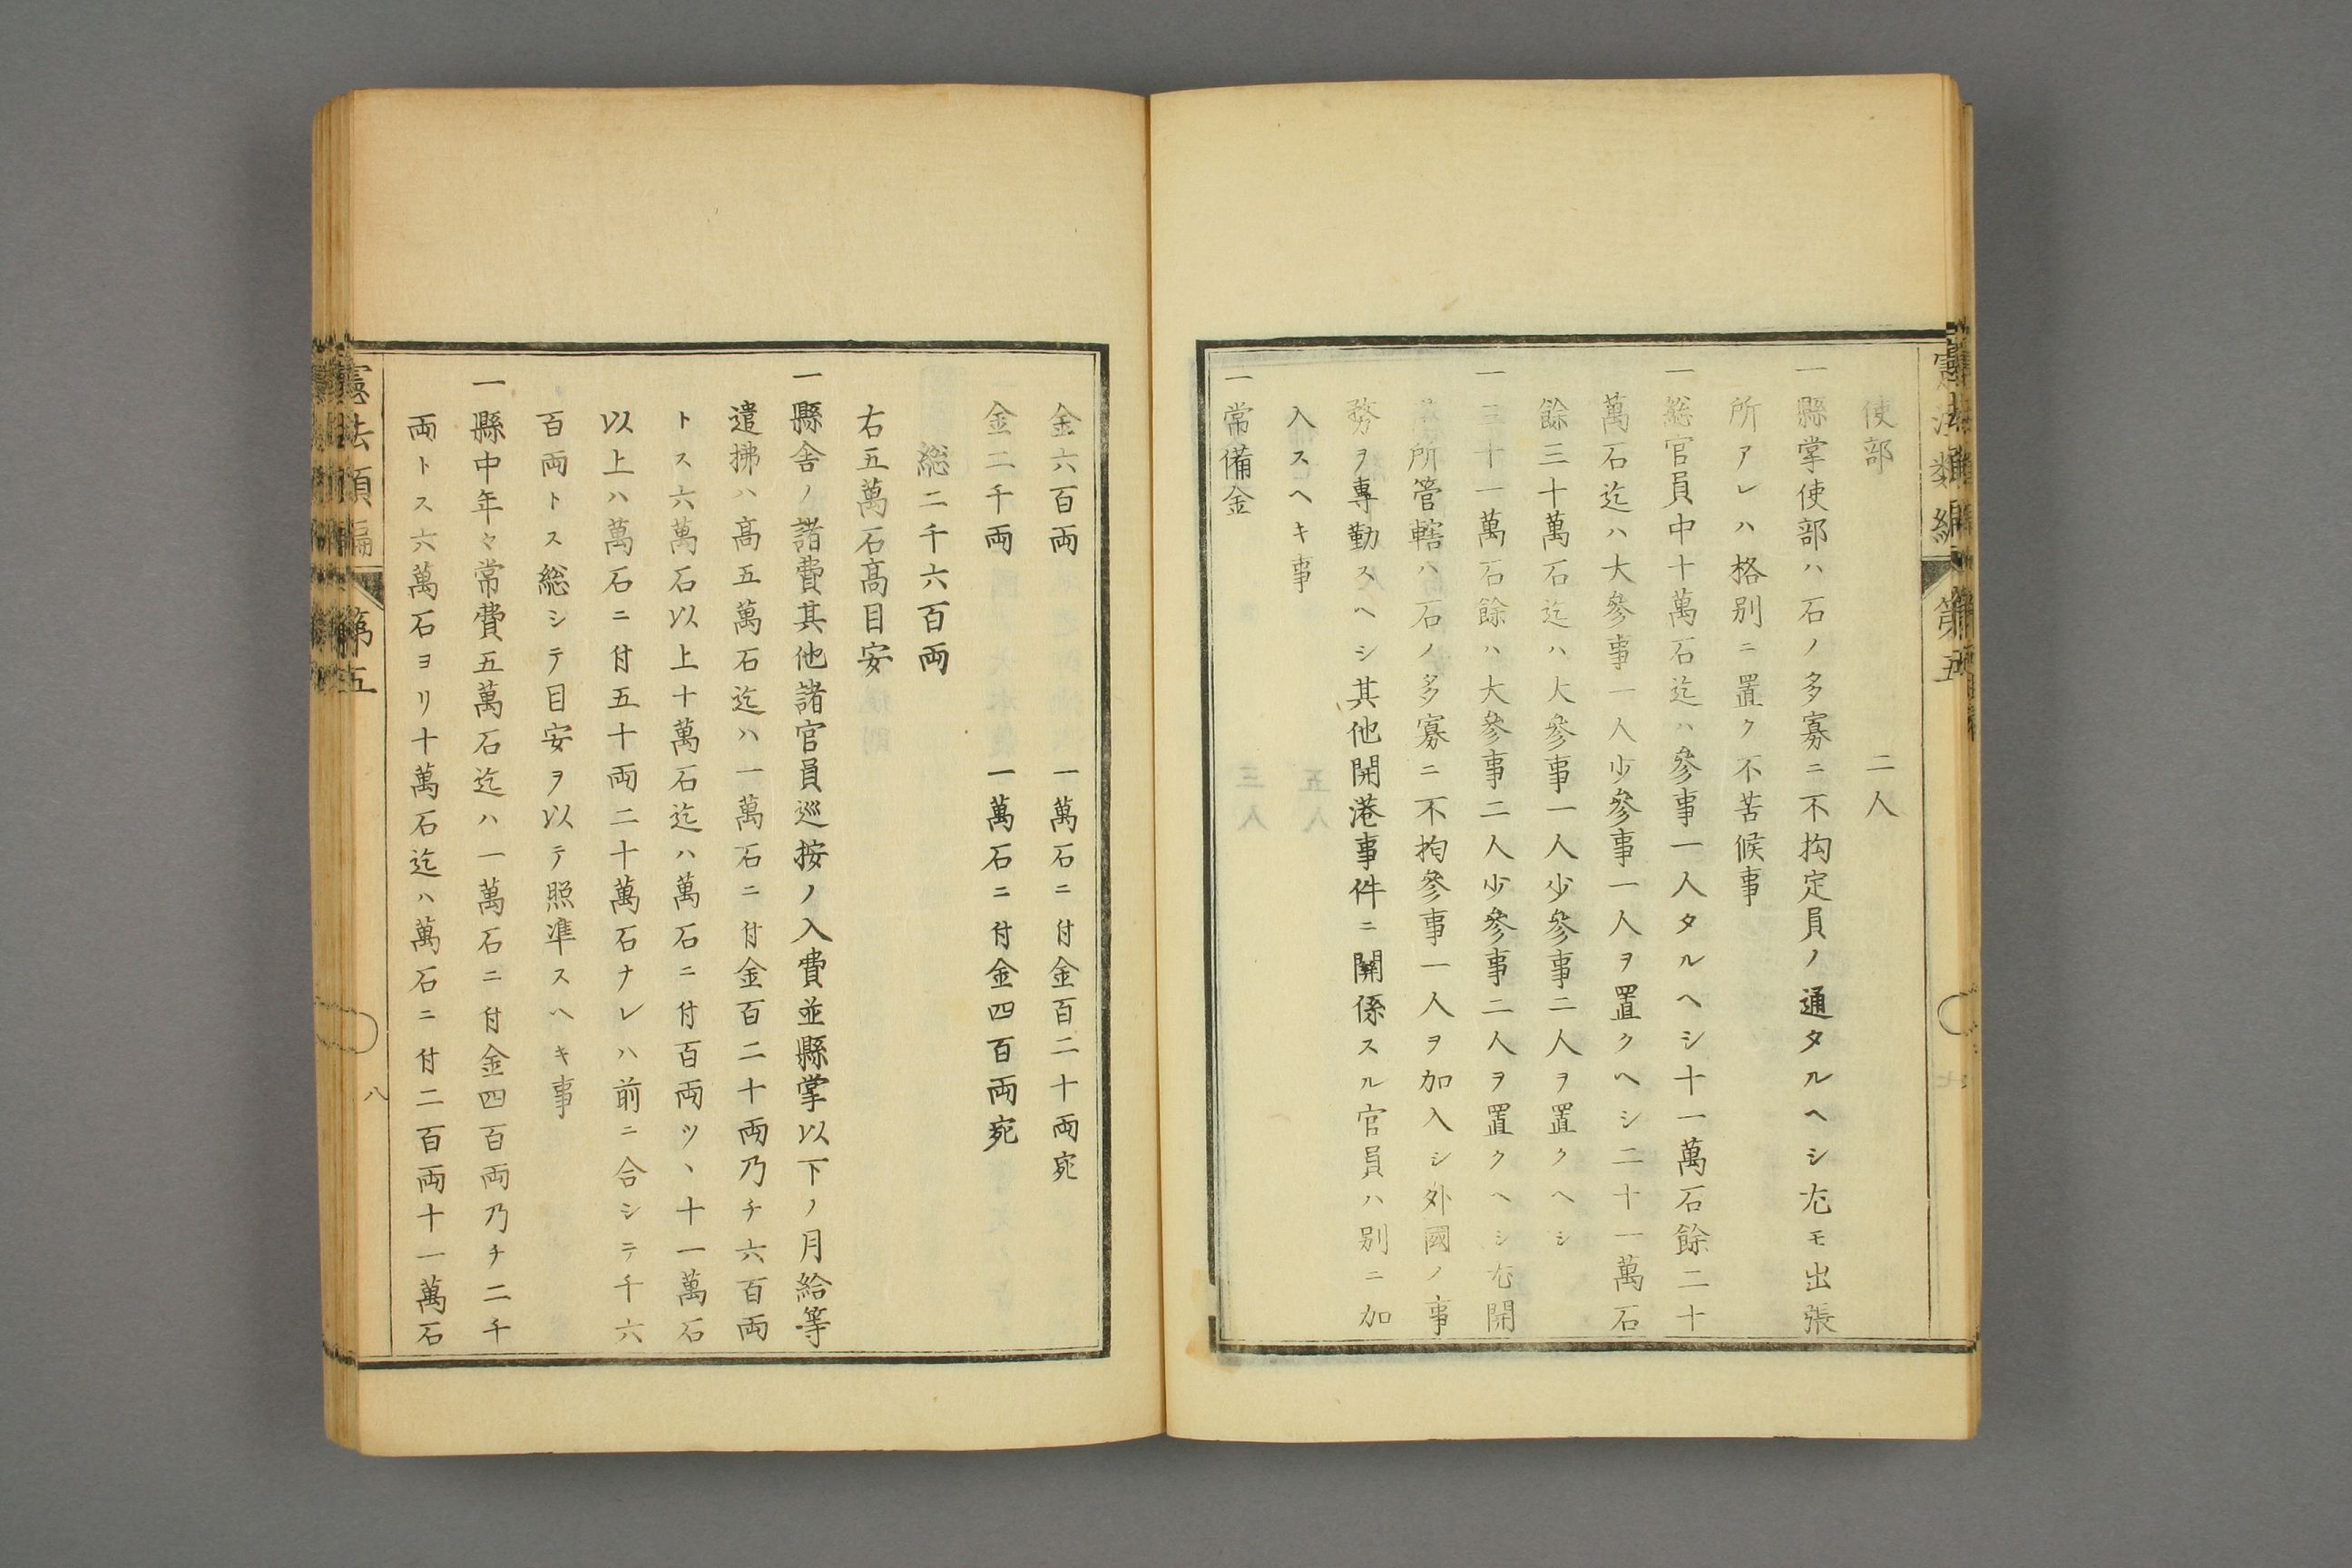 使部 二人
一縣掌使部ハ石ノ多寡ニ不拘定員ノ通タルヘシ尤モ出張
所アレハ格別ニ置ク不苦候事
一総官員中十萬石迄ハ參事一人タルヘシ十一萬石餘二十
萬石迄ハ大參事一人少參事一人ヲ置クヘシ二十一萬石
餘三十萬石迄ハ大參事一人少參事二人ヲ置クヘシ
一三十一萬石餘ハ大參事二人少參事二人ヲ置クヘシ尤開
港所管轄ハ石ノ多寡ニ不拘參事一人ヲ加入シ外國ノ事
務ヲ專勤スヘシ其他開港事件ニ關係スル官員ハ別ニ加
入スヘキ事
一常備金
金六百両 一萬石ニ付金百二十両宛
金二千両 一萬石ニ付金四百両宛
総二千六百両
右五萬石髙目安
一縣舎ノ諸費其他諸官員巡按ノ入費並縣掌以下ノ月給等
遣拂ハ髙五萬石迄ハ一萬石ニ付金百二十両乃チ六百両
トス六萬石以上十萬石迄ハ萬石ニ付百両ツヽ十一萬石
以上ハ萬石ニ付五十両二十萬石ナレハ前ニ合シテ千六
百両トス総シテ目安ヲ以テ照準スヘキ事
一縣中年々常費五萬石迄ハ一萬石ニ付金四百両乃チ二千
両トス六萬石ヨリ十萬石迄ハ萬石ニ付二百両十一萬石
憲法類編 第五
八